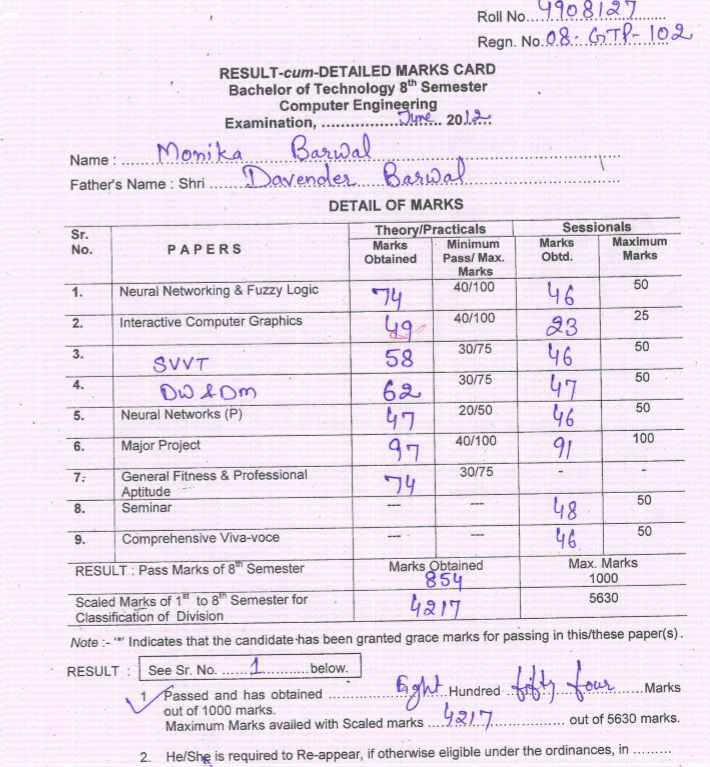 Roll No. 4908127
Regn. No. 08-GTP-102
RESULT-cum-DETAILED MARKS CARD
Bachelor of Technology 8th Semester
Computer Engineering
Examination, ................June.. 2012...
Name : ...... Monika Barwal ......
Father's Name : Shri ...... Davender Barwal ......
DETAIL OF MARKS
Sr. No. PAPERS Theory/Practicals Sessionals
Marks Obtained Minimum Pass/ Max. Marks Marks Obtd. Maximum Marks
1. Neural Networking & Fuzzy Logic 74 40/100 46 50
2. Interactive Computer Graphics 49 40/100 23 25
3. SVVT 58 30/75 46 50
4. DW & DM 62 30/75 47 50
5. Neural Networks (P) 47 20/50 46 50
6. Major Project 97 40/100 91 100
7. General Fitness & Professional Aptitude 74 30/75 - -
8. Seminar --- --- 48 50
9. Comprehensive Viva-voce --- --- 46 50
RESULT : Pass Marks of 8th Semester Marks Obtained 854 Max. Marks 1000
Scaled Marks of 1st to 8th Semester for Classification of Division 4217 5630
Note :- '*' Indicates that the candidate has been granted grace marks for passing in this/these paper(s).
RESULT : See Sr. No. ......1..........below.
1 Passed and has obtained ...................Eight Hundred ..fifty four......Marks
out of 1000 marks.
Maximum Marks availed with Scaled marks ...4217................... out of 5630 marks.
2. He/She is required to Re-appear, if otherwise eligible under the ordinances, in .........